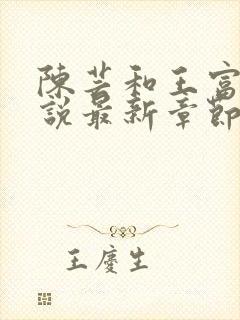 陳芸和王富
說最新章節
王慶生